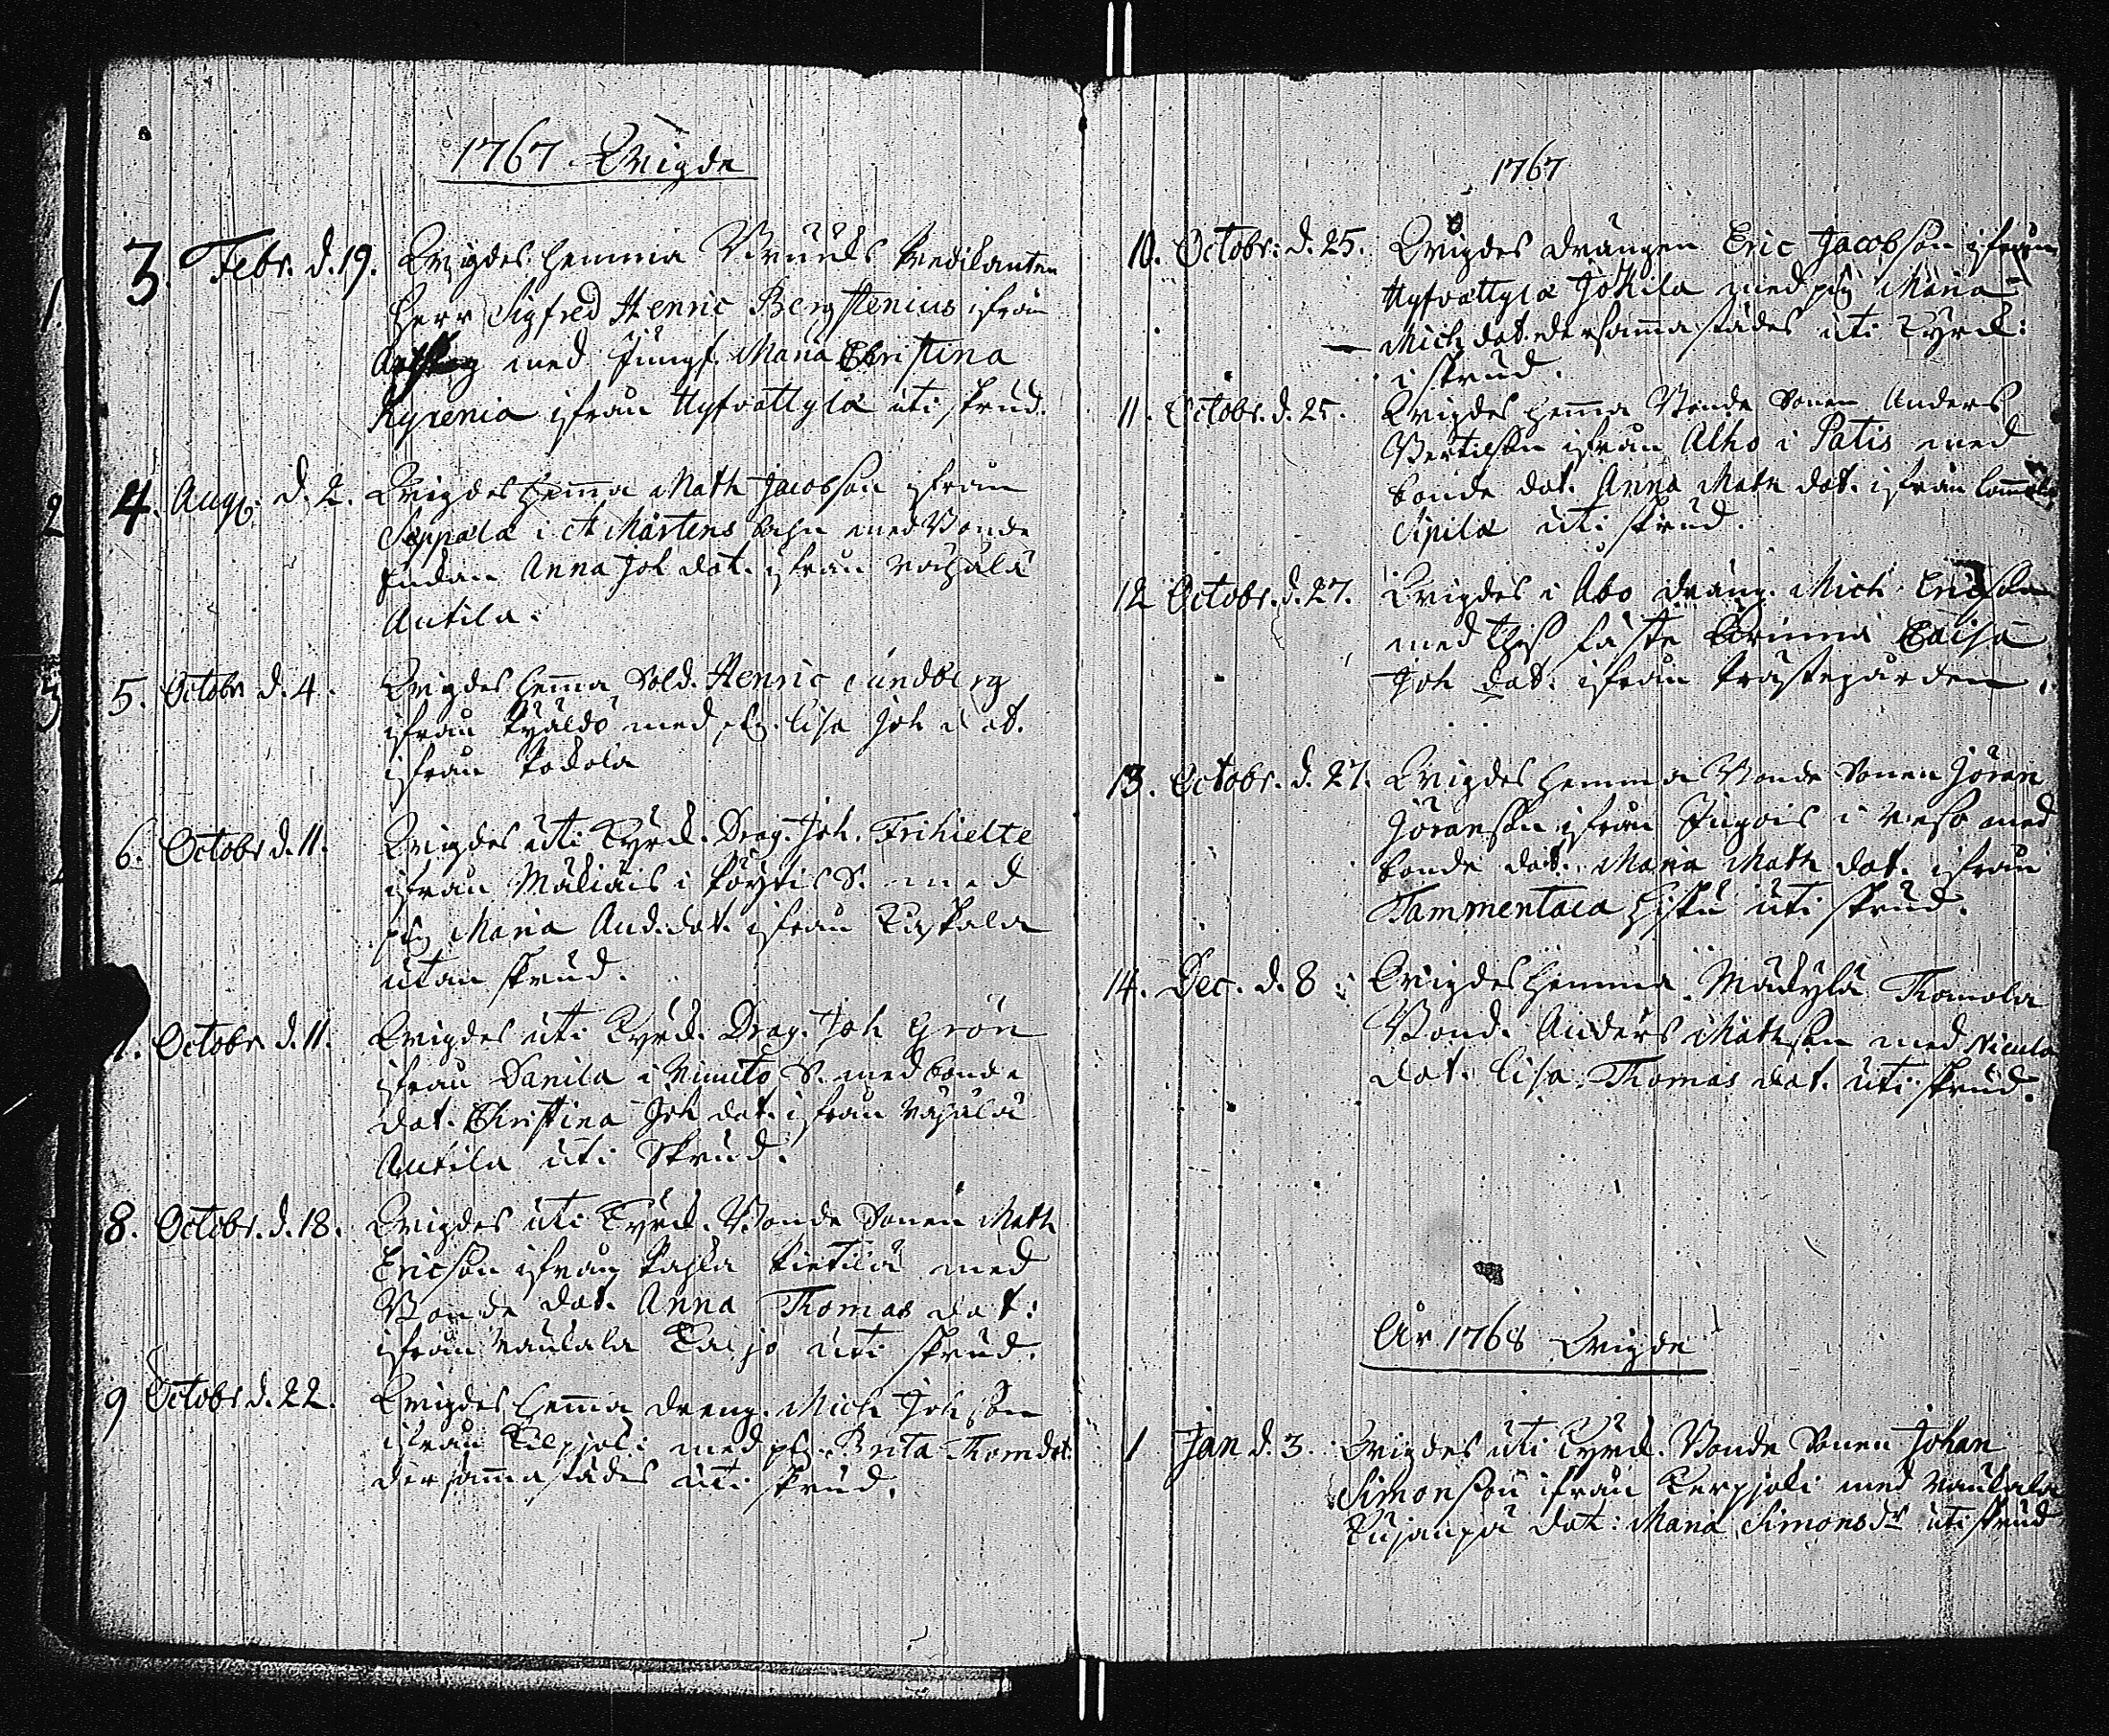 1767 Wigde
3. Febr. d. 19. Wigdes hemma Bruuks Predikanten
Herr Sigfred Henric Bergstenius ifrån
med Jungf. Maria Christina
Kyrenia ifrån Hyfvättylä uti skrud.
4. Aug. d. 2. Wigdes hemma Math Jacobson ifrån
Seppälä i St Mårtens Sokn med Bonde
Enckan Anna Joh dot. ifrån
Antila.
5. Octobr d. 4. Wigdes hemma Sold. Henric Lundberg
ifrån med pig. Lisa Joh dot.
ifrån
6. Octobr d. 11. Wigdes uti Kyrck. Drag. Joh. Frihielte
ifrån Mäkiäis i Pöytis S. med
pig Maria And. dot. ifrån
utan skrud.
7. Octobr d. 11. Wigdes uti Kyrck. Drag. Joh Grön
ifrån Danila i S. med bonde
dot. Christina Joh dot. ifrån
Antila uti Skrud.
8. Octobr. d. 18. Wigdes uti Kyrck. Bonde Sonen Math
Ericson ifrån med
Bonde dot. Anna Thomas dot:
ifrån uti skrud.
9 Octobr d. 22. Wigdes hemma dreng. Mich Johson
ifrån med pig. Brita Thom dot.
dersammastädes uti skrud.
1767
10. Octobr: d. 25. Wigdes drängen Eric Jacobson ifrån
Hyfvättylä Jokila med pig Maria
Mich dot. dersammastädes uti Kyrck:
i skrud.
11. Octobr. d. 25. Wigdes hemma Bonde Sonen Anders
Bertilson ifrån Alho i Patis med
bonde dot. Anna Math dot. ifrån
Sipilä uti skrud.
12 Octobr. d. 27. Wigdes i Åbo dräng. Mich Ericson
med thess fäste Qvinna Caisa
Joh dot. ifrån Prästegården.
13. Octobr. d. 27. Wigdes hemma Bonde Sonen Jöran
Jöranson ifrån Ingois i Weso med
bonde dot. Maria Math dot. ifrån
Tammentaca uti skrud.
14. Dec. d. 8: Wigdes hemma Mäckylä Thomola
Bond. Anders Mathson med Nicula
dot. Lisa Thomas dot. uti skrud.
År 1768 Wigde
1 Jan d. 3. Wigdes uti Kyrck. Bonde Sonen Johan
Simonson ifrån Kerpjoki med
dot: Maria Simonsdr uti skrud